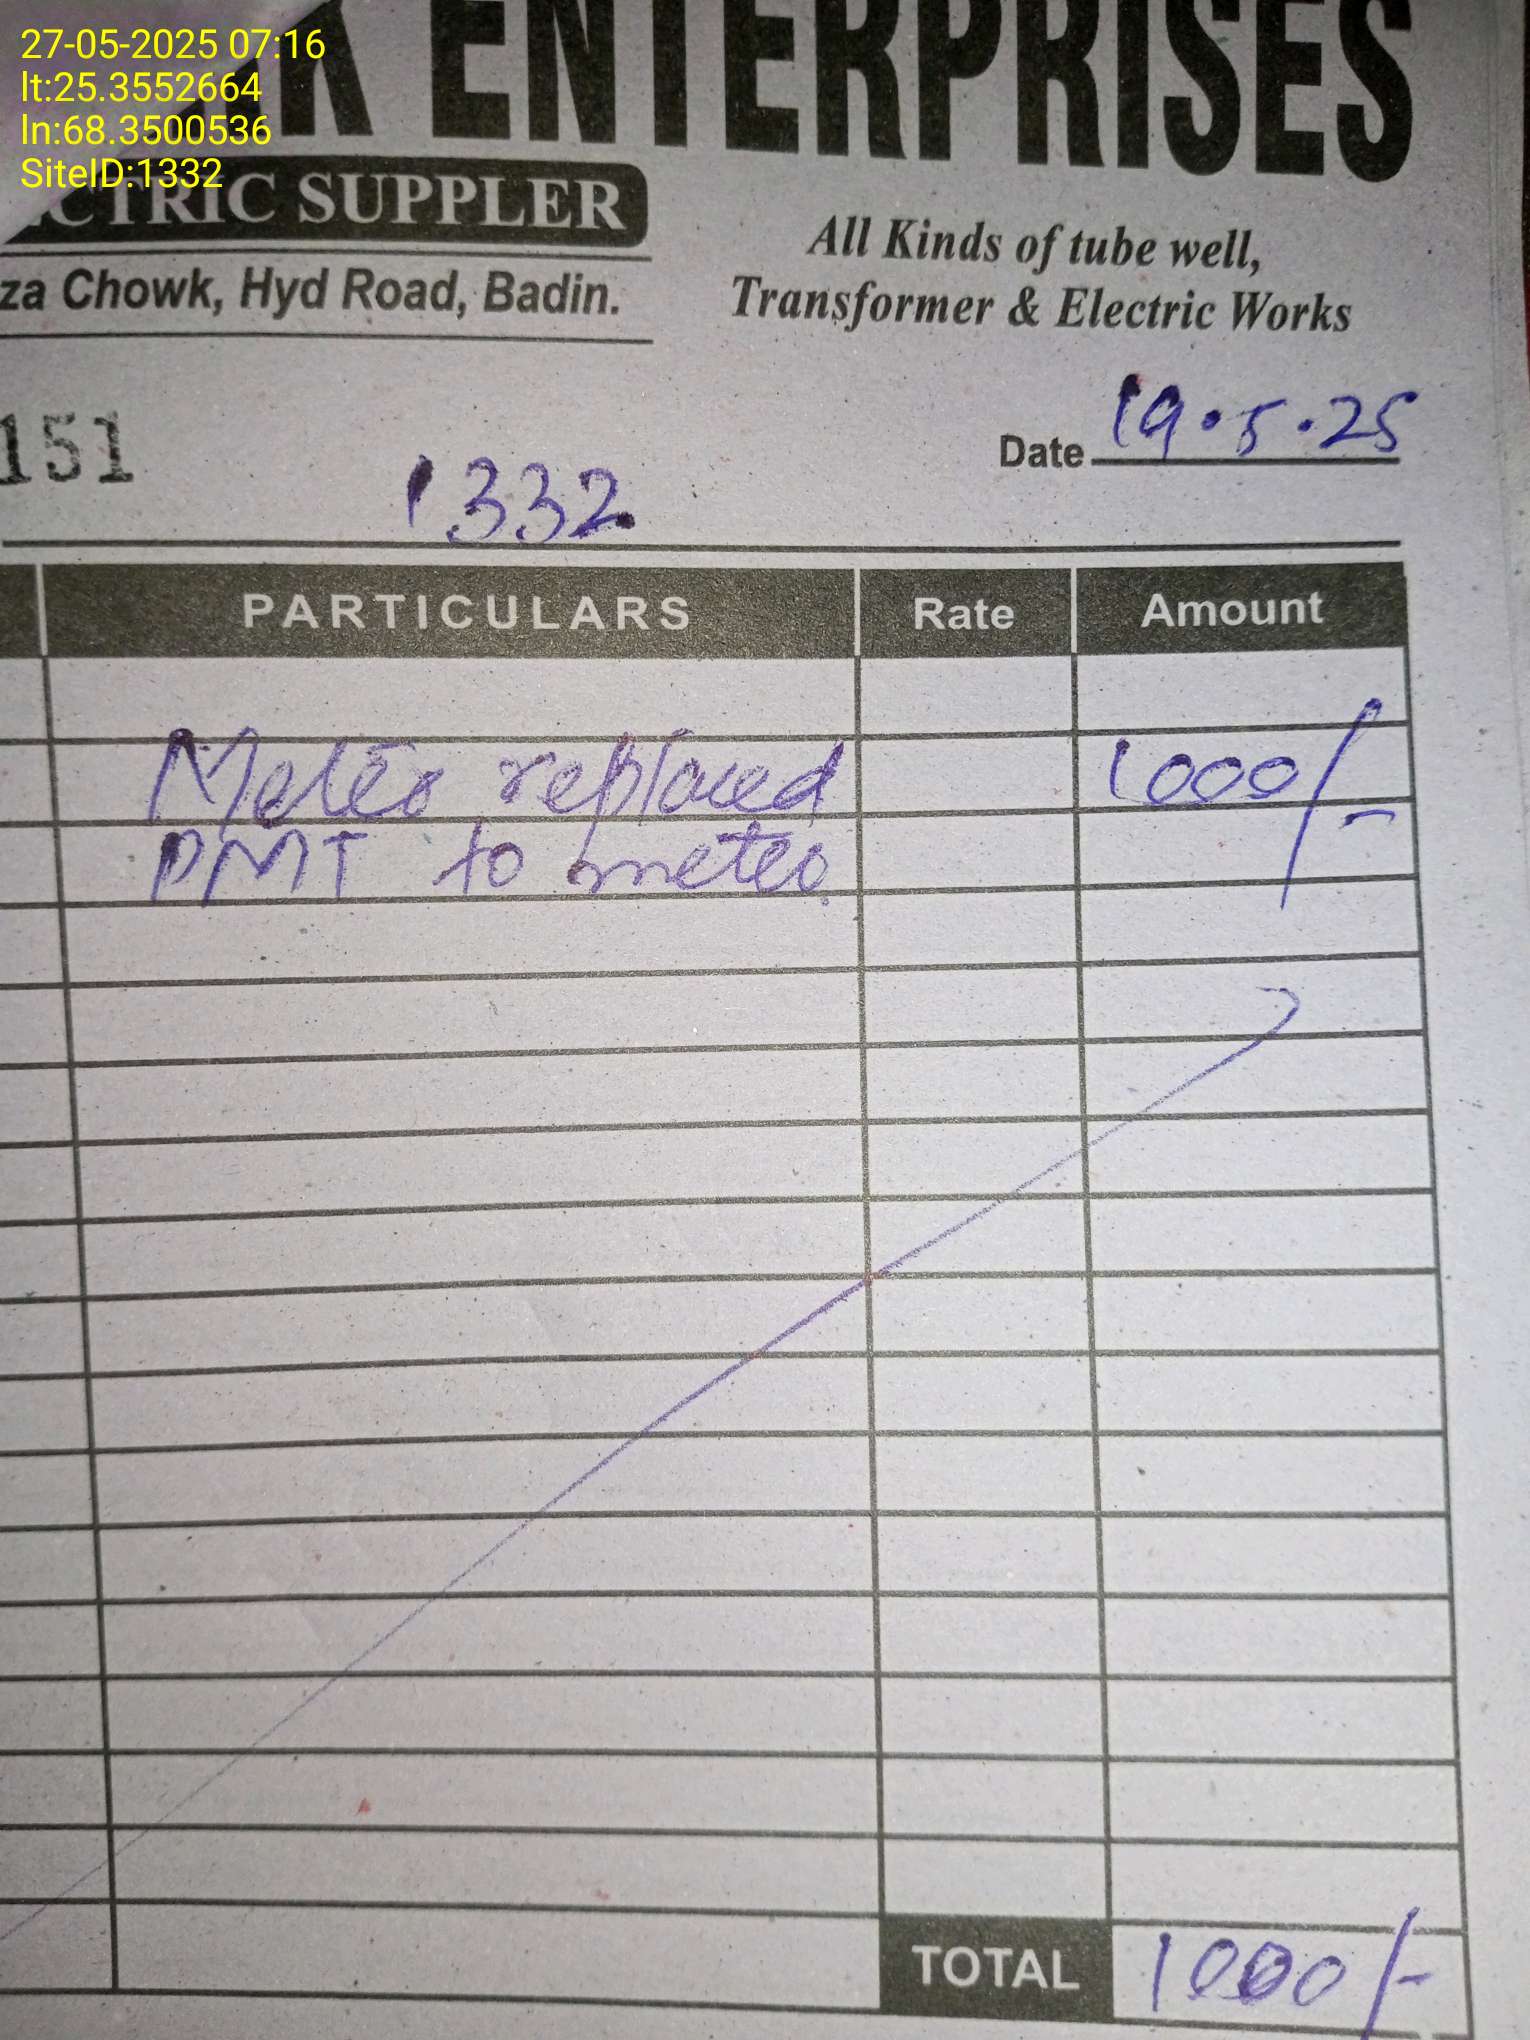 27-05-2025 07:16
lt:25.3552664
ln:68.3500536
SiteID:1332
K ENTERPRISES
CTRIC SUPPLER
za Chowk, Hyd Road, Badin.
All Kinds of tube well,
Transformer & Electric Works
151
Date 19.5.25
1332
PARTICULARS Rate Amount
Meter replaced 1000/-
PMT to meter
TOTAL 1000/-